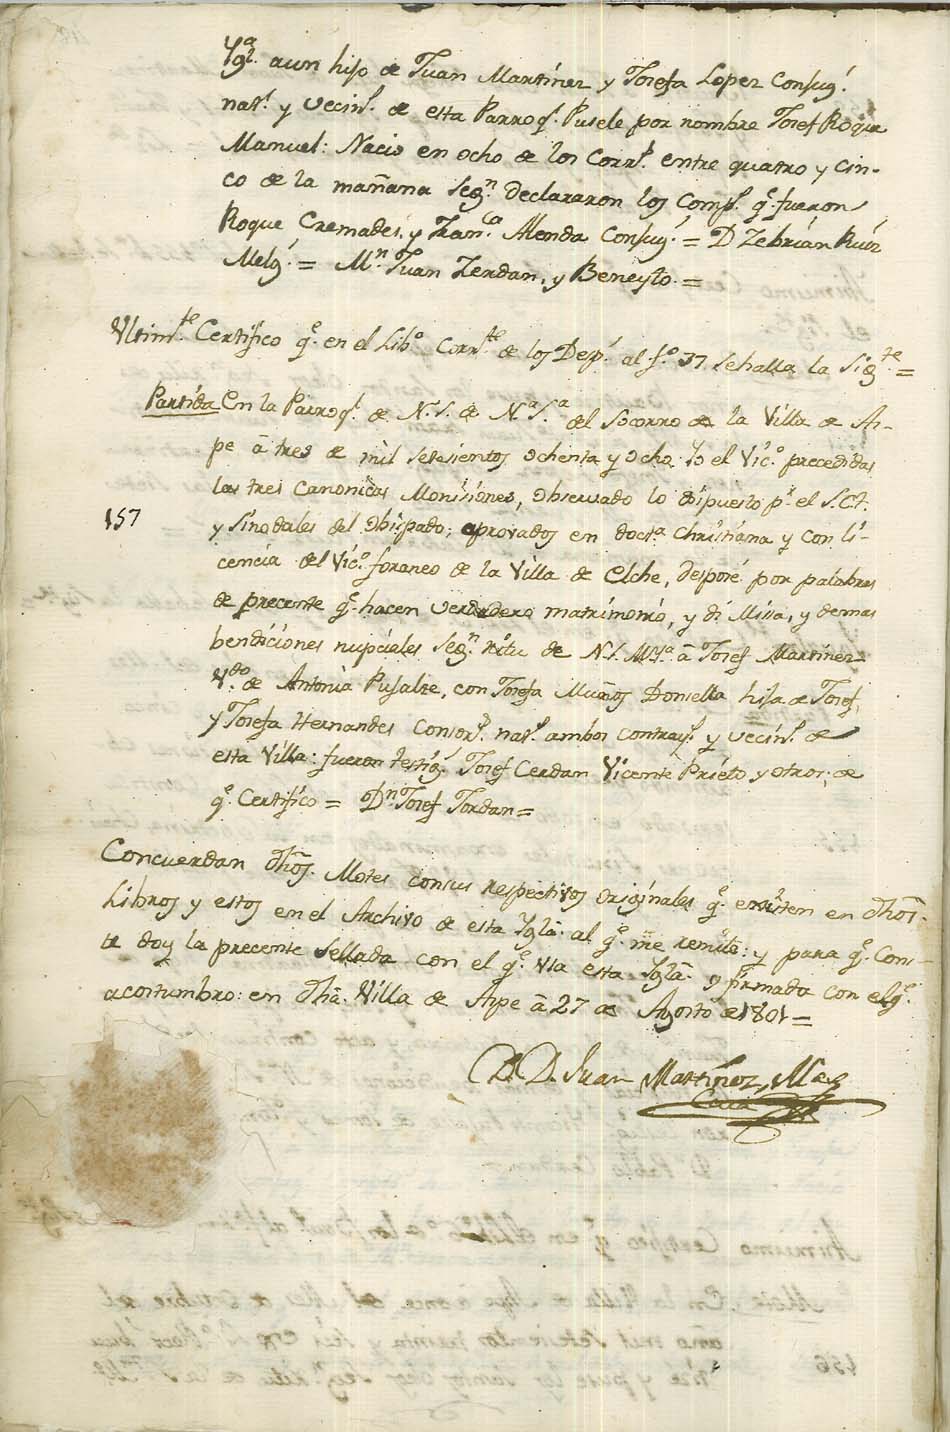 Ygª. aun hijo de Juan Martinez y Josefa Lopez Consug.ˢ
nat.ˢ y vecin.ˢ de esta Parroq.ˡ Pusele por nombre Josef Roque
Manuel: Nacio en ocho de los Corr.ˢ entre quatro y cin-
co de la mañana seg.ⁿ declararon los Comp.ˢ q.ᵉ fueron
Roque Cremades, y Fran.ᶜᵃ Alenda Consug.ˢ = D Zebrian Ruiz
Melg.ˢ = M.ⁿ Juan Zerdan, y Beneyto. =
Vltim.ᵗᵉ Certifico q.ᵉ en el Lib.º Corr.ᵗᵉ de los Desp.ˢ al f.º 37 sehalla la Sig.ᵗᵉ =
Partida En la Parroq.ˡ de N.S. de N.ªS.ª del Socorro de la Villa de As-
pe â tres de mil setesientos ochenta y ocho Yo el Vic.º precedidas
las tres Canonicas Monisiones, observado lo dispuesto p.ʳ el S.C.T.
157
y Sinodales del Obispado; aprovados en doct.ª Christiana y con li-
cencia del Vic.º foraneo de la Villa de Elche, desposé por palabras
de precente q.ᵉ hacen verdadero matrimonio, y di Missa, y demas
bendiciones nupciales seg.ⁿ ritu de N.S. M.Yª. â Josef Martinez
V.ᵈᵒ de Antonia Pujalte, con Josefa Muños Donsella hija de Josef,
y Josefa Hernandes Consor.ˢ nat.ˢ ambos contray.ˢ y vecin.ˢ de
esta Villa: fueron testig.ˢ Josef Cerdan Vicente Prieto y otros; de
q.ᵉ Certifico = D.ⁿ Josef Jordan =
Concuerdan dhos. Motes consus respectivos originales q.ᵉ existen en dhos.
Libros y estos en el Archivo de esta Yglâ. al q.ᵉ me remito: y para q.ᵉ Cons-
te doy la precente sellada con el q.ᵉ vsa esta Yglâ. y firmada con el q.ᵉ
acostumbro: en dhâ. Villa de Aspe â 27 de Agosto de 1801 =
D. D. Juan Martinez,
Cura